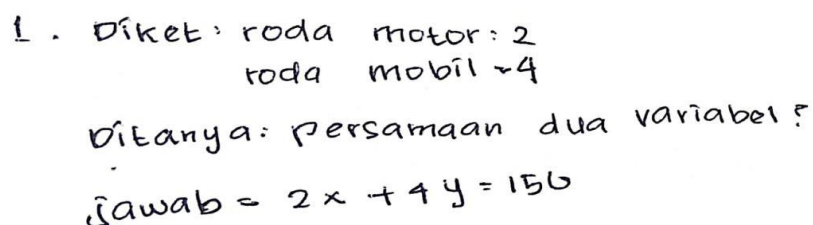 1. Diket: roda motor: 2
roda mobil = 4
Ditanya: persamaan dua variabel?
jawab = 2x + 4y = 156